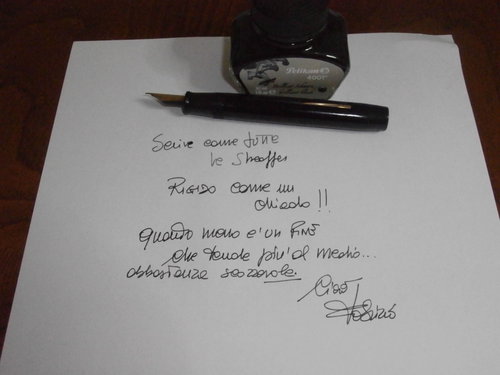 Pelikan
4001
Scrive come tutte
le Sheaffer
RIGIDO come un
chiodo!!
Quanto meno è un FINE
che tende più al medio...
abbastanza scorrevole.
Ciao
Fabrizio